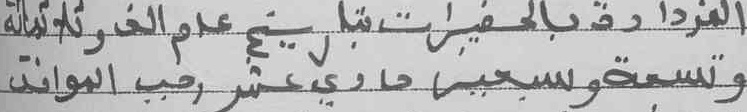 الفردا وت بالحفيرات بتاريخ عام الف وثلاثمائة
وتسعة وسبعين حادي عشر رجب الموافق